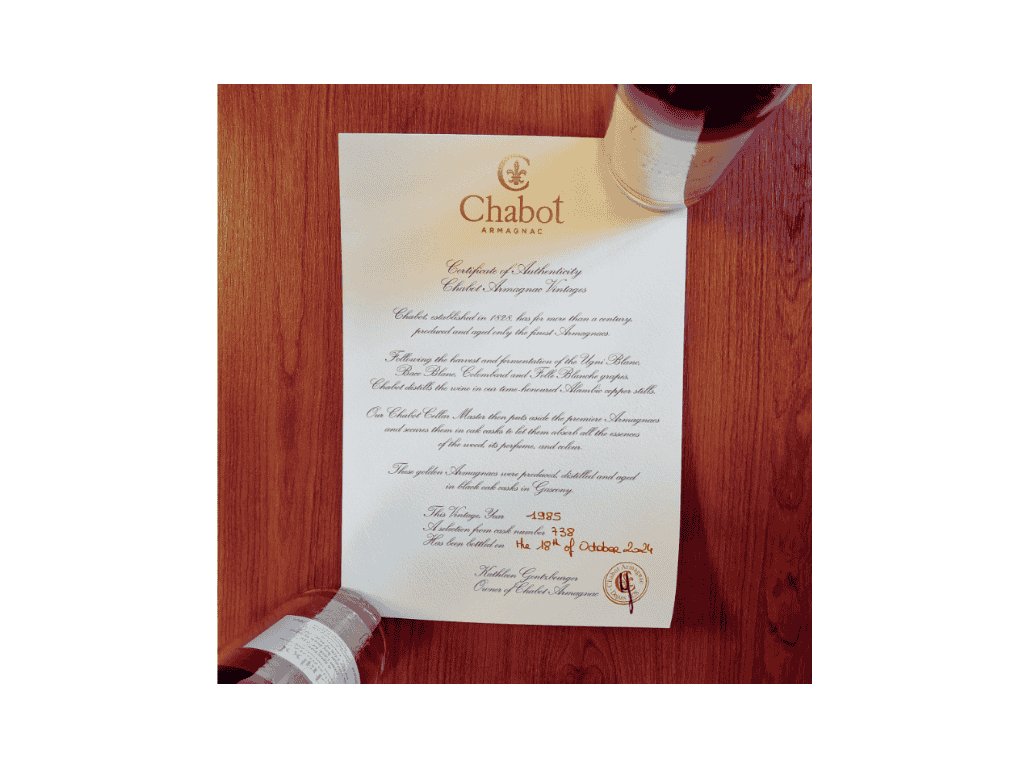 Chabot
ARMAGNAC
Certificate of Authenticity
Chabot Armagnac Vintages
Chabot, established in 1828, has for more than a century,
produced and aged only the finest Armagnacs.
Following the harvest and fermentation of the Ugni Blanc,
Baco Blanc, Colombard and Folle Blanche grapes,
Chabot distills the wine in our time-honoured Alambic copper stills.
Our Chabot Cellar Master then puts aside the premiere Armagnacs
and secures them in oak casks to let them absorb all the essences
of the wood, its perfume, and colour.
These golden Armagnacs were produced, distilled and aged
in black oak casks in Gascony.
This Vintage, Year 1985
A selection from cask number 738
Has been bottled on the 18th of October 2024
Kathleen Gentzbourger
Owner of Chabot Armagnac
Chabot Armagnac